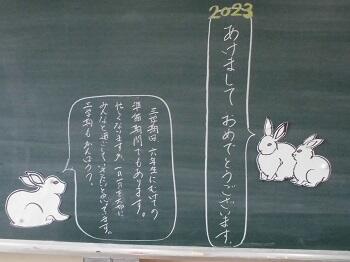 2023
あけまして おめでとうございます。
三学期は、六年生にむけての
準備期間でもあります。
忙しくなりますが、一日一日を大切に
みんなと過ごしていきたいと思います。
三学期も がんばろう。